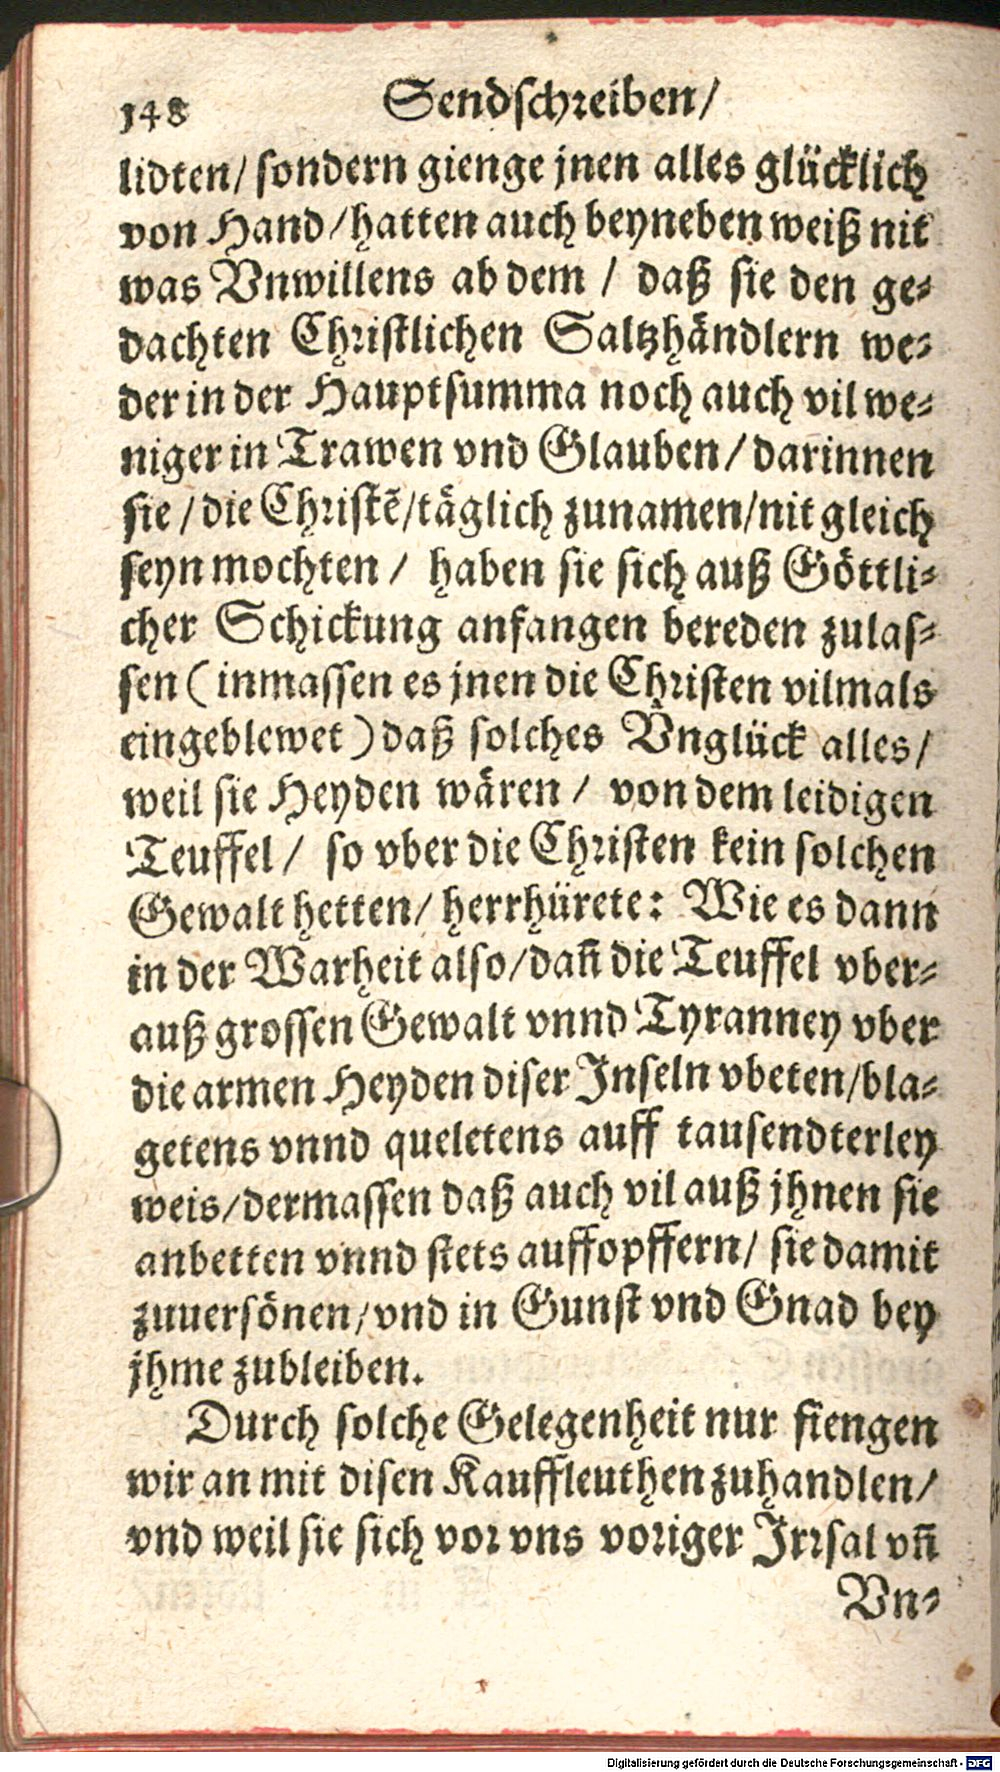 148 Sendschreiben/
lidten/ sondern gienge jnen alles glücklich
von Hand/hatten auch beyneben weiß nit
was Vnwillens ab dem / daß sie den ge-
dachten Christlichen Saltzhändlern we-
der in der Hauptsumma noch auch vil we-
niger in Trawen vnd Glauben/ darinnen
sie / die Christẽ/täglich zunamen/nit gleich
seyn mochten / haben sie sich auß Göttli-
cher Schickung anfangen bereden zulas-
sen ( inmassen es jnen die Christen vilmals
eingeblewet ) daß solches Vnglück alles/
weil sie Heyden wären / von dem leidigen
Teuffel / so vber die Christen kein solchen
Gewalt hetten/ herrhürete: Wie es dann
in der Warheit also/dañ die Teuffel vber-
auß grossen Gewalt vnnd Tyranney vber
die armen Heyden diser Inseln vbeten/bla-
getens vnnd queletens auff tausendterley
weis/dermassen daß auch vil auß jhnen sie
anbetten vnnd stets auffopffern/ sie damit
zuuersönen/vnd in Gunst vnd Gnad bey
jhme zubleiben.
Durch solche Gelegenheit nur fiengen
wir an mit disen Kauffleuthen zuhandlen/
vnd weil sie sich vor vns voriger Irrsal vñ
Vn-
Digitalisierung gefördert durch die Deutsche Forschungsgemeinschaft - DFG